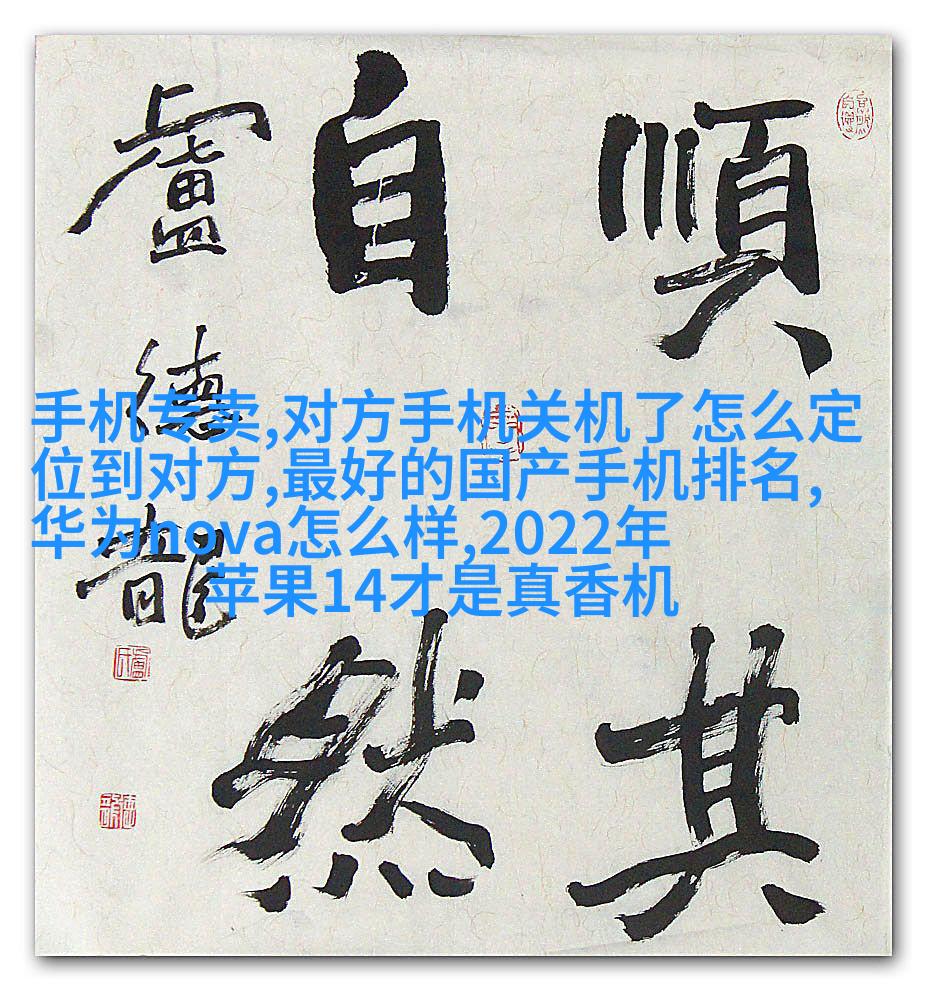 順其
自然
盧德龍
手机专卖,对方手机关机了怎么定
位到对方,最好的国产手机排名,
华为nova怎么样,2022年
苹果14才是真香机